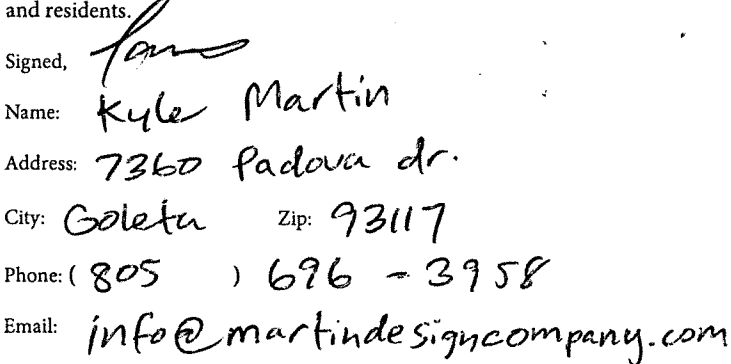 and residents.
Signed,
Name: Kyle Martin
Address: 7360 Padova dr.
City: Goleta Zip: 93117
Phone: ( 805 ) 696 - 3958
Email: info@martindesigncompany.com